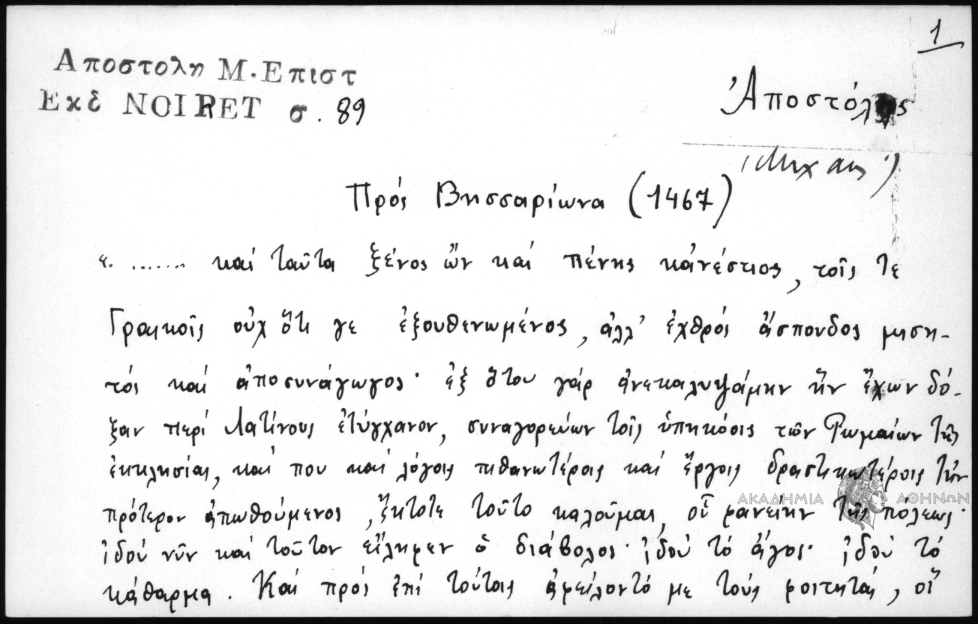 1
Αποστολη Μ. Επιστ
Εκδ NOIRET σ. 89
Ἀποστόλης
(Μιχαηλ)
Πρός Βησσαρίωνα (1467)
«....... καί ταῦτα ξένος ὤν καί πένης κἀνέστιος, τοῖς τε
Γραικοῖς οὐχ ὅτι γε ἐξουθενωμένος, ἀλλ' ἐχθρός ἄσπονδος μιση-
τός καί ἀποσυνάγωγος· ἐξ ὅτου γάρ ἀνεκαλυψάμην ἥν ἔχων δό-
ξαν περί Λατίνους ἐτύγχανον, συναγορεύων τοῖς ὑπηκόοις τῶν Ρωμαίων τῆς
ἐκκλησίας, καί που καί λόγοις πιθανωτέροις καί ἔργοις δραστικωτέροις τήν
πρότερον ἀπωθούμενος, ἔκτοτε τοῦτο καλοῦμαι, οἵ φανείην τῆς πόλεως·
ἰδού νῦν καί τοῦτον εἴληφεν ὁ διάβολος· ἰδού τό ἄγος· ἰδού τό
κάθαρμα. Καί πρός ἐπί τούτοις ἀφείλοντό με τούς φοιτητάς, οἵ
ΑΚΑΔΗΜΙΑ ΑΘΗΝΩΝ